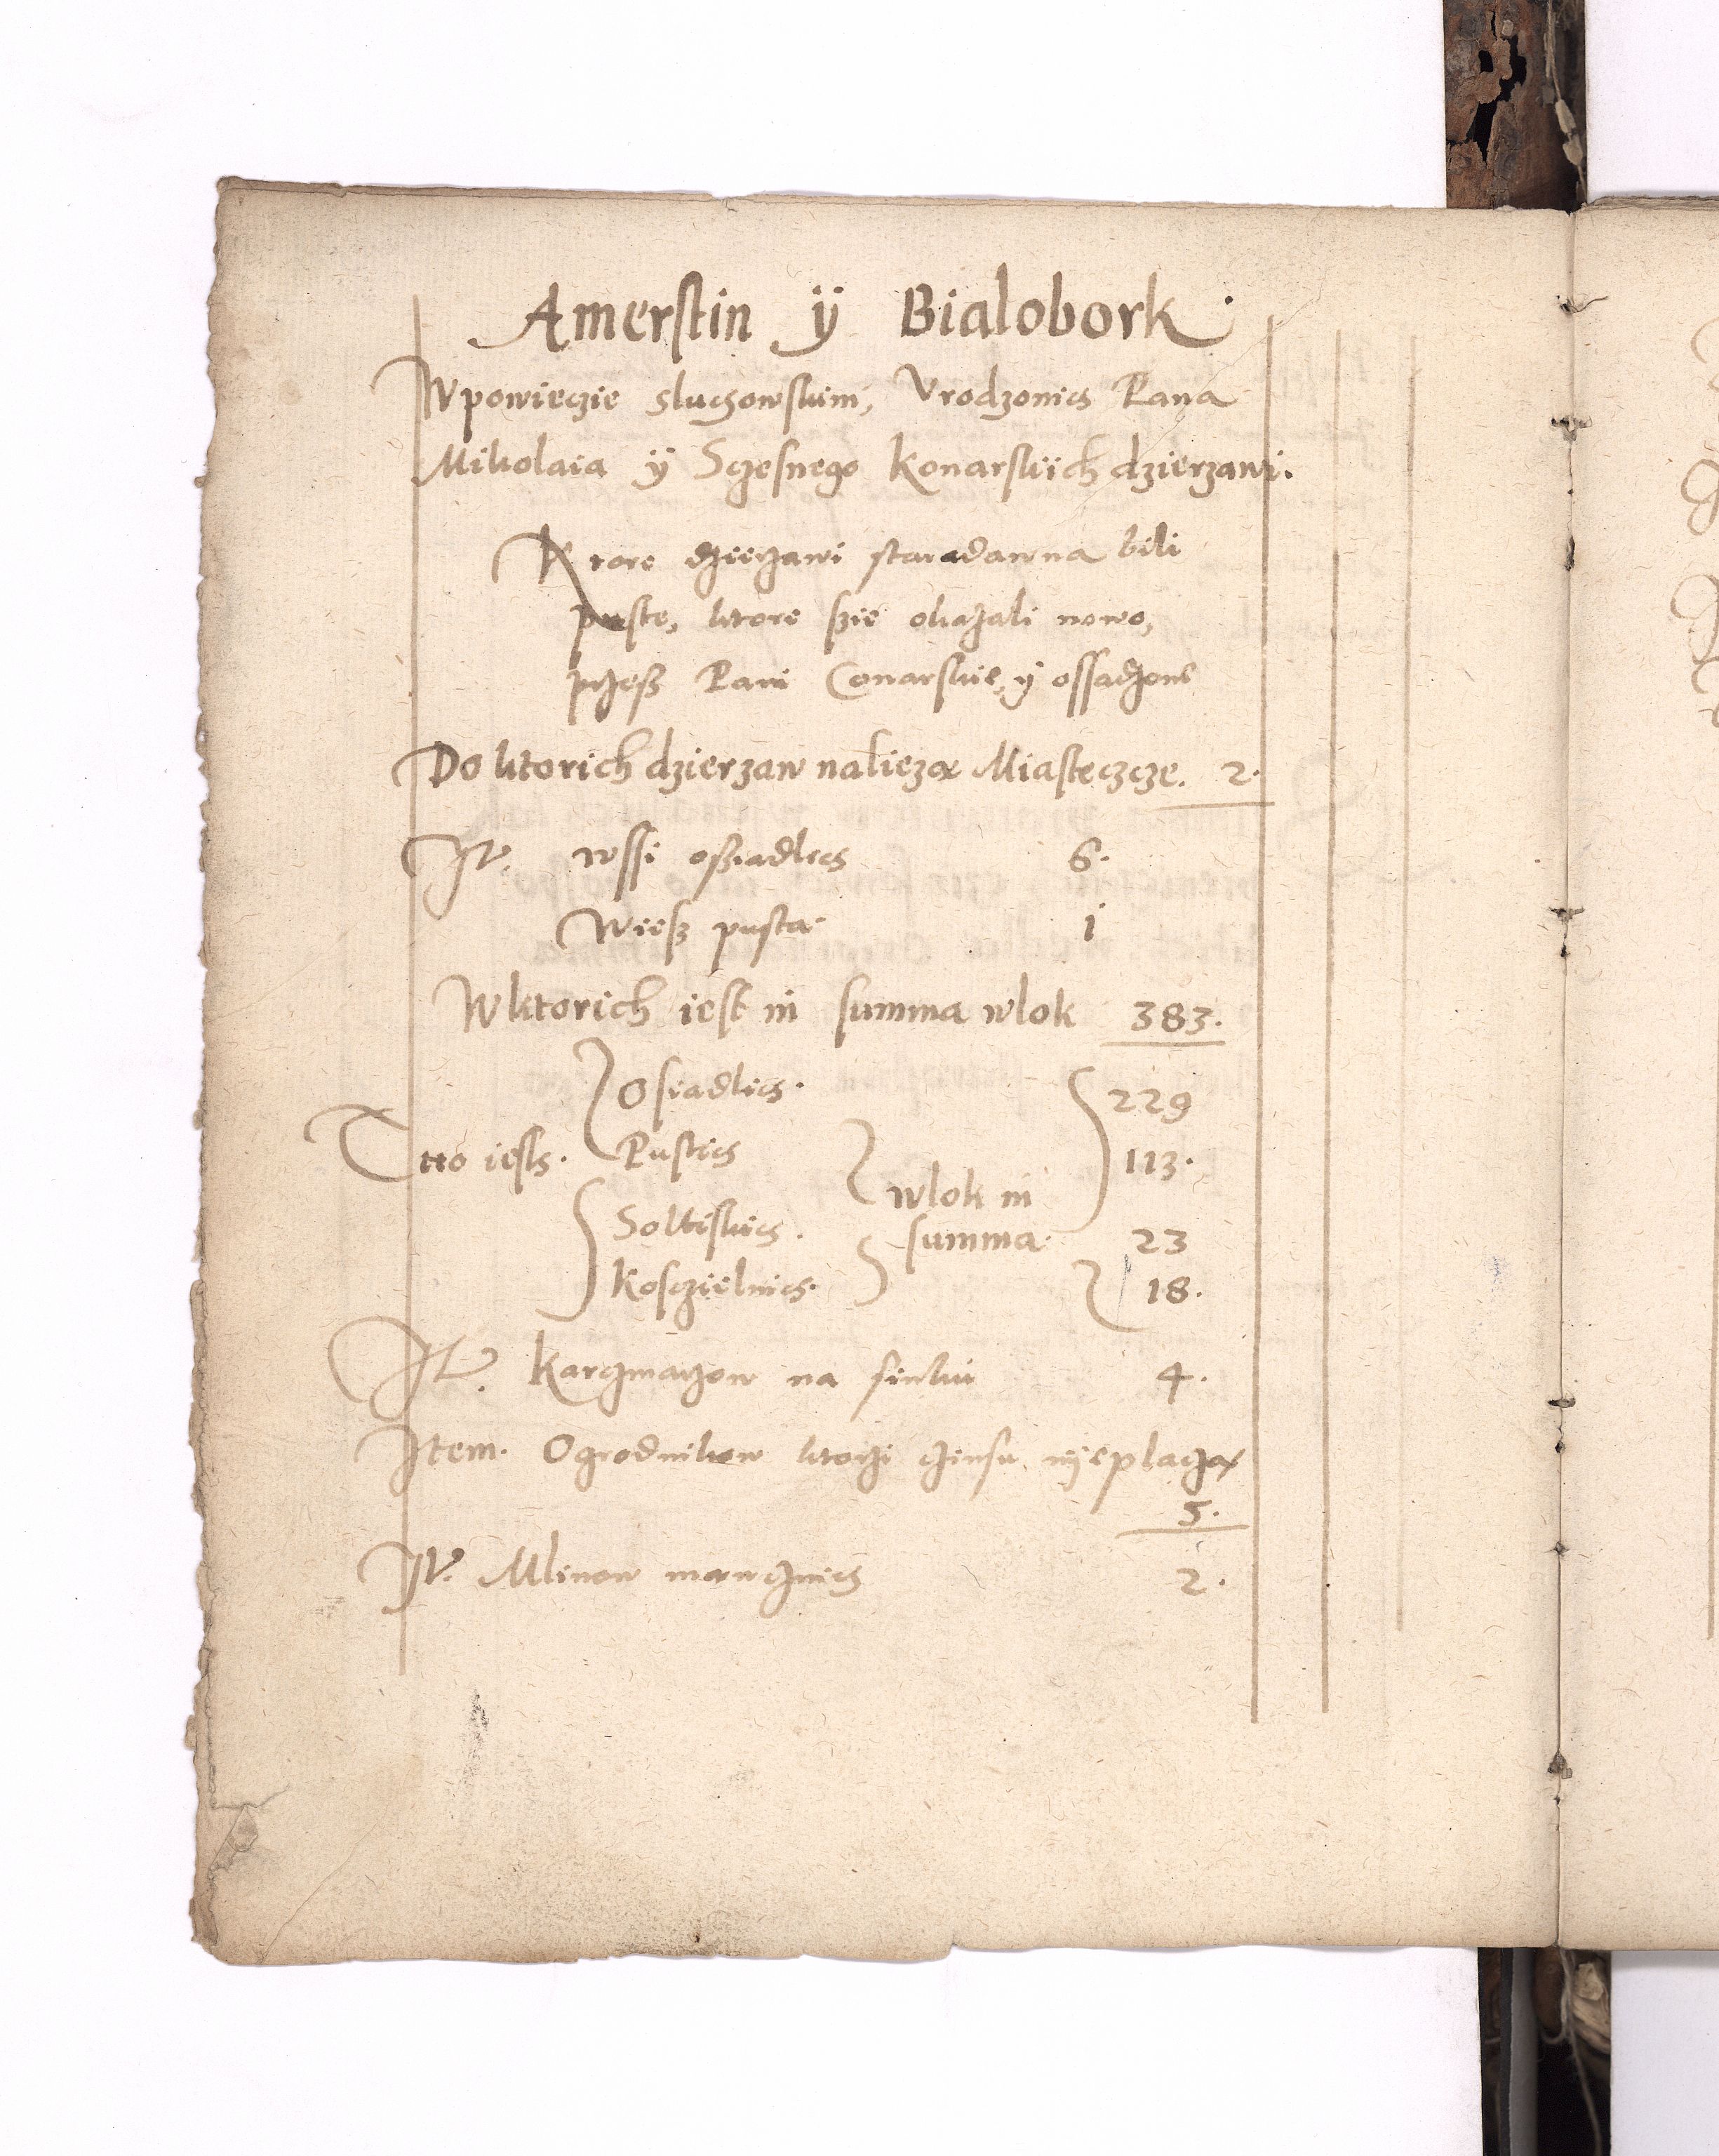 Amerstin ÿ Bialobork.
Wpowieczie sluchowskim, Vrodzonich Pana
Mikolaia ÿ Sczesnego Konarskich dzierzawi.
Ktore dzierzawi staradawna bili
puste, ktore szie okazali nowo,
przesz Pani Conarskie, ÿ ossadzone
Do ktorich dzierzaw nalieza Miasteczcze. 2.
It. wssi osziadlich 6.
Wiesz pusta. 1
Wktorich iest in summa wlok 383.
Osiadlich. 229
Tto iesth. Pustich 113.
wlok in
Soltiskich. summa. 23
Kosczielnich. 18.
It. Karczmarzow na sinku 4.
Item. Ogrodnikow ktorzi czinsu nÿeplacza
5.
It. Mlinow
2.